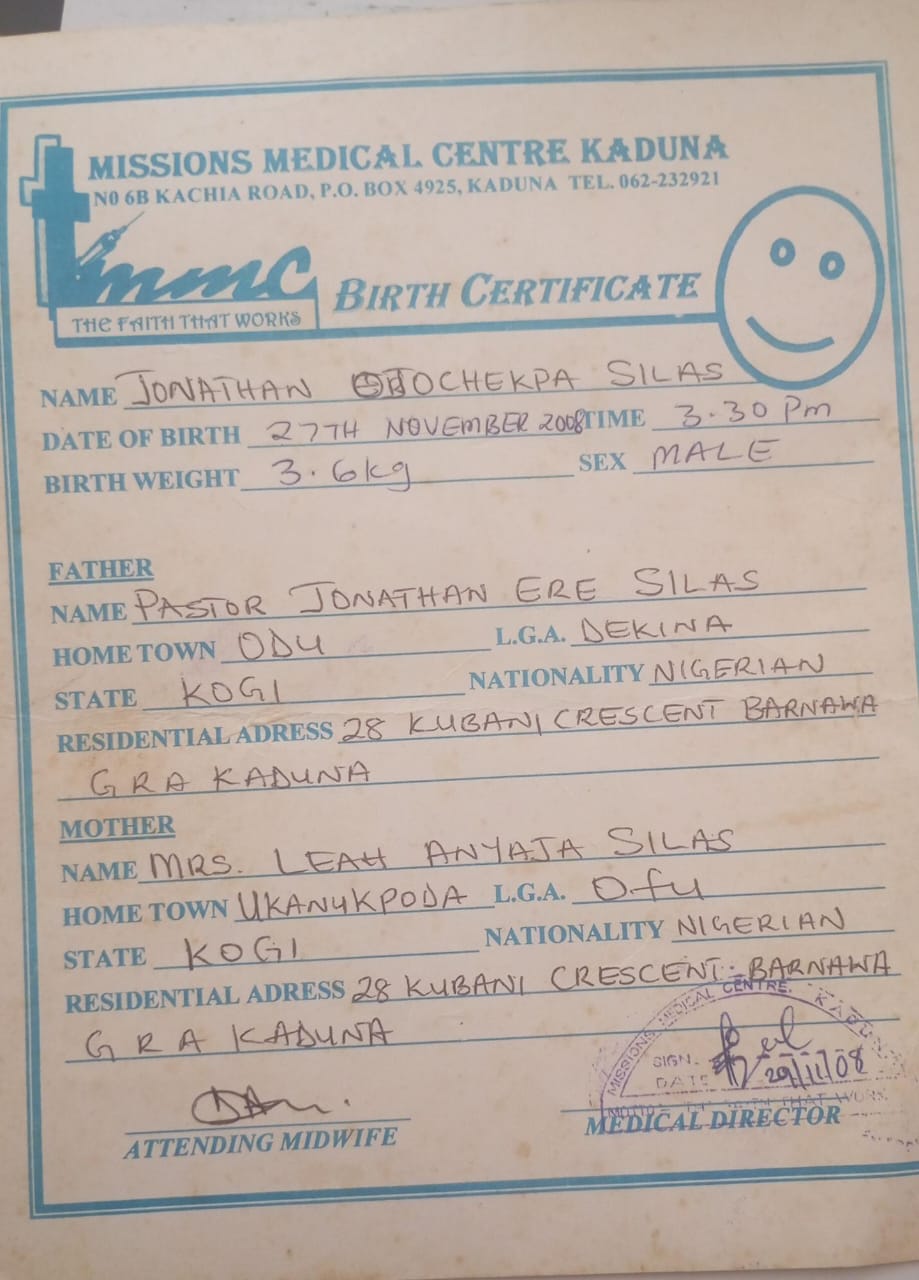 MISSIONS MEDICAL CENTRE KADUNA
N0 6B KACHIA ROAD, P.O. BOX 4925, KADUNA TEL. 062-232921
mmc
THE FAITH THAT WORKS
BIRTH CERTIFICATE
NAME JONATHAN OCHEKPA SILAS
DATE OF BIRTH 27TH NOVEMBER 2008 TIME 3.30 Pm
BIRTH WEIGHT 3.6kg SEX MALE
FATHER
NAME PASTOR JONATHAN ERE SILAS
HOME TOWN ODU L.G.A. DEKINA
STATE KOGI NATIONALITY NIGERIAN
RESIDENTIAL ADRESS 28 KUBANI CRESCENT BARNAWA
G R A KADUNA
MOTHER
NAME MRS. LEAH ANYAJA SILAS
HOME TOWN UKANUKPODA L.G.A. Ofu
STATE KOGI NATIONALITY NIGERIAN
RESIDENTIAL ADRESS 28 KUBANI CRESCENT BARNAWA
G R A KADUNA
MISSIONS MEDICAL CENTRE, KADUNA
SIGN.
DATE 29/11/08
THAT WORK
ATTENDING MIDWIFE
MEDICAL DIRECTOR